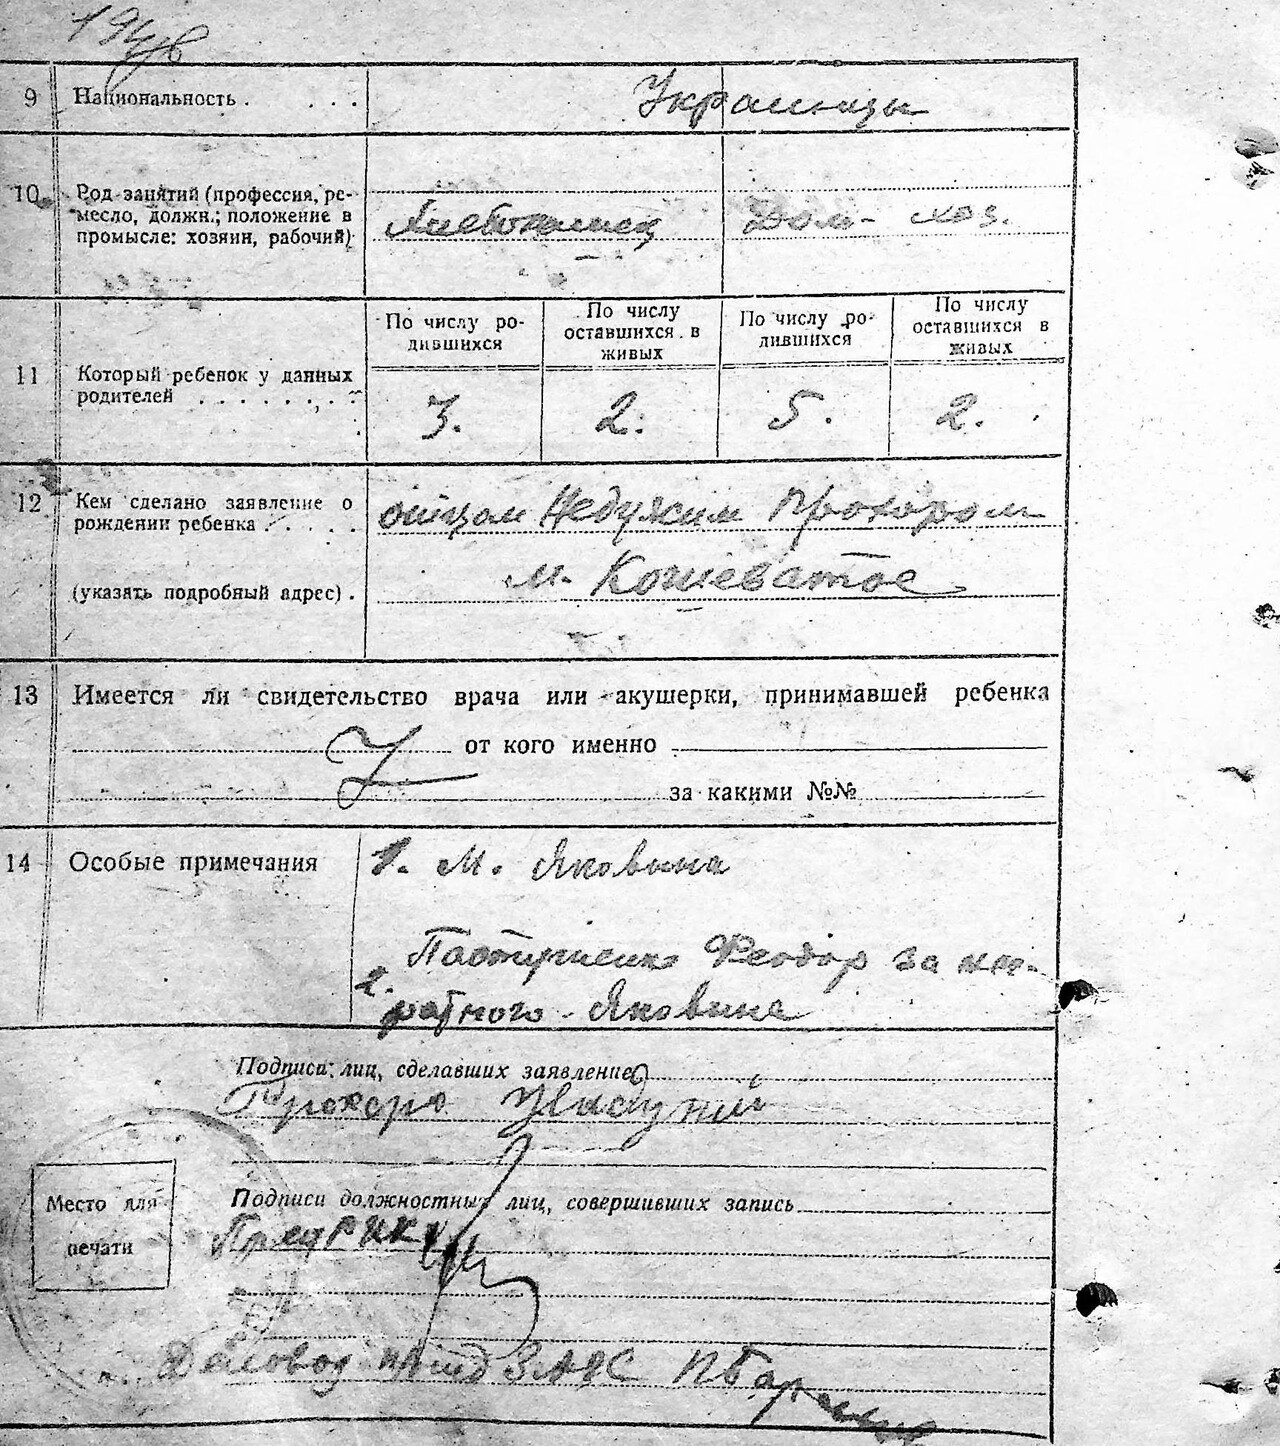 9 Национальность . . . . Украинцы
10 Род занятий (профессия, ре-
месло, должн.; положение в
промысле: хозяин, рабочий) Хлебопашец Дом- хоз.
По числу ро-
дившихся
По числу
оставшихся в
живых
По числу ро-
дившихся
По числу
оставшихся в
живых
11 Который ребенок у данных
родителей . . . . . . . . 3. 2. 5. 2.
12 Кем сделано заявление о
рождении ребенка . . . . отцом Недужим Прохором
(указать подробный адрес) . м. Кошеватое
13 Имеется ли свидетельство врача или акушерки, принимавшей ребенка
от кого именно
за какими №№
14 Особые примечания 1. М. Яковина
Феодор за не-
2. ратного - Яковина
Подписи лиц, сделавших заявление
Прохора
Подписи должностных лиц, совершивших запись
Место для
печати
ПредРИК
Деловод ЗАГС